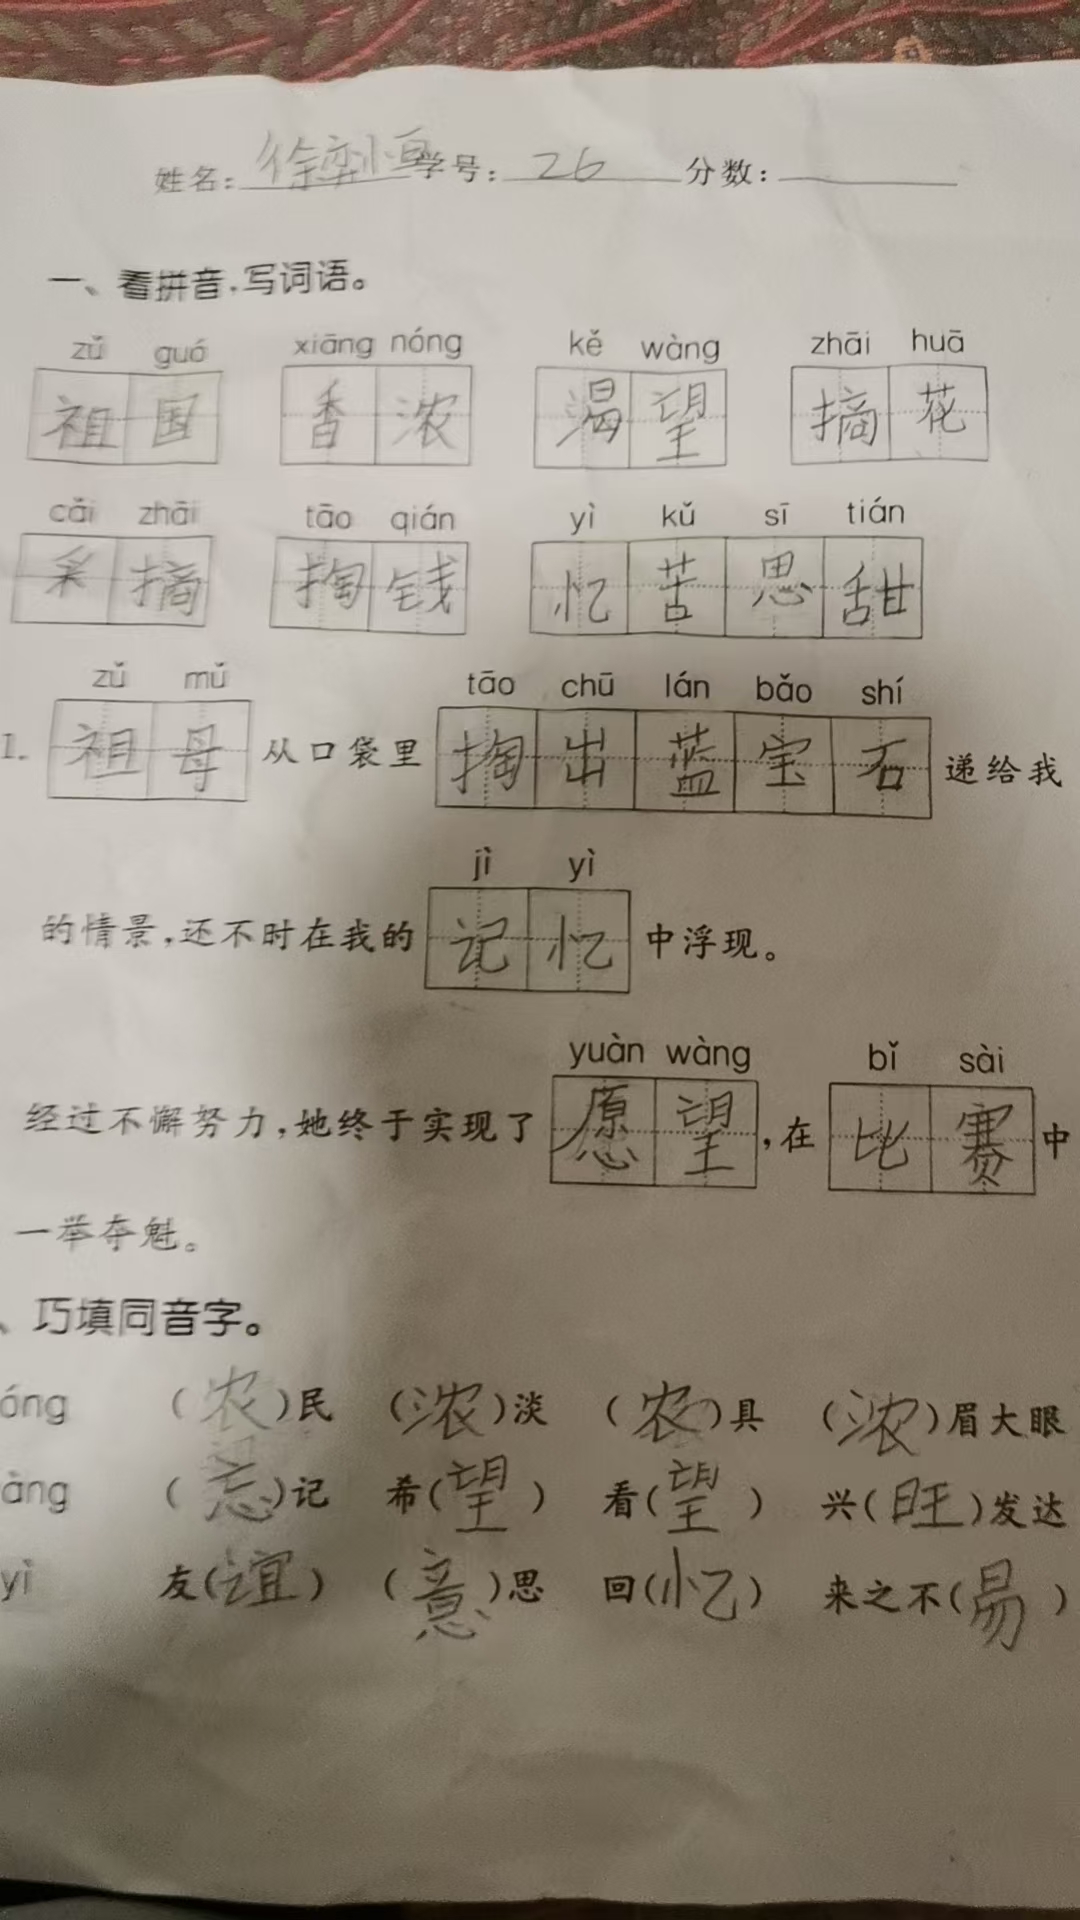 姓名：徐奕恒 学号：26 分数：
一、看拼音，写词语。
zǔ guó xiāng nóng kě wàng zhāi huā
祖国 香浓 渴望 摘花
cǎi zhāi tāo qián yì kǔ sī tián
采摘 掏钱 忆苦思甜
zǔ mǔ tāo chū lán bǎo shí
1. 祖母 从口袋里 掏出蓝宝石 递给我
jì yì
的情景，还不时在我的 记忆 中浮现。
yuàn wàng bǐ sài
经过不懈努力，她终于实现了 愿望 ，在 比赛 中
一举夺魁。
、巧填同音字。
óng （农）民 （浓）淡 （农）具 （浓）眉大眼
àng （忘）记 希（望） 看（望） 兴（旺）发达
yì 友（谊） （意）思 回（忆） 来之不（易）